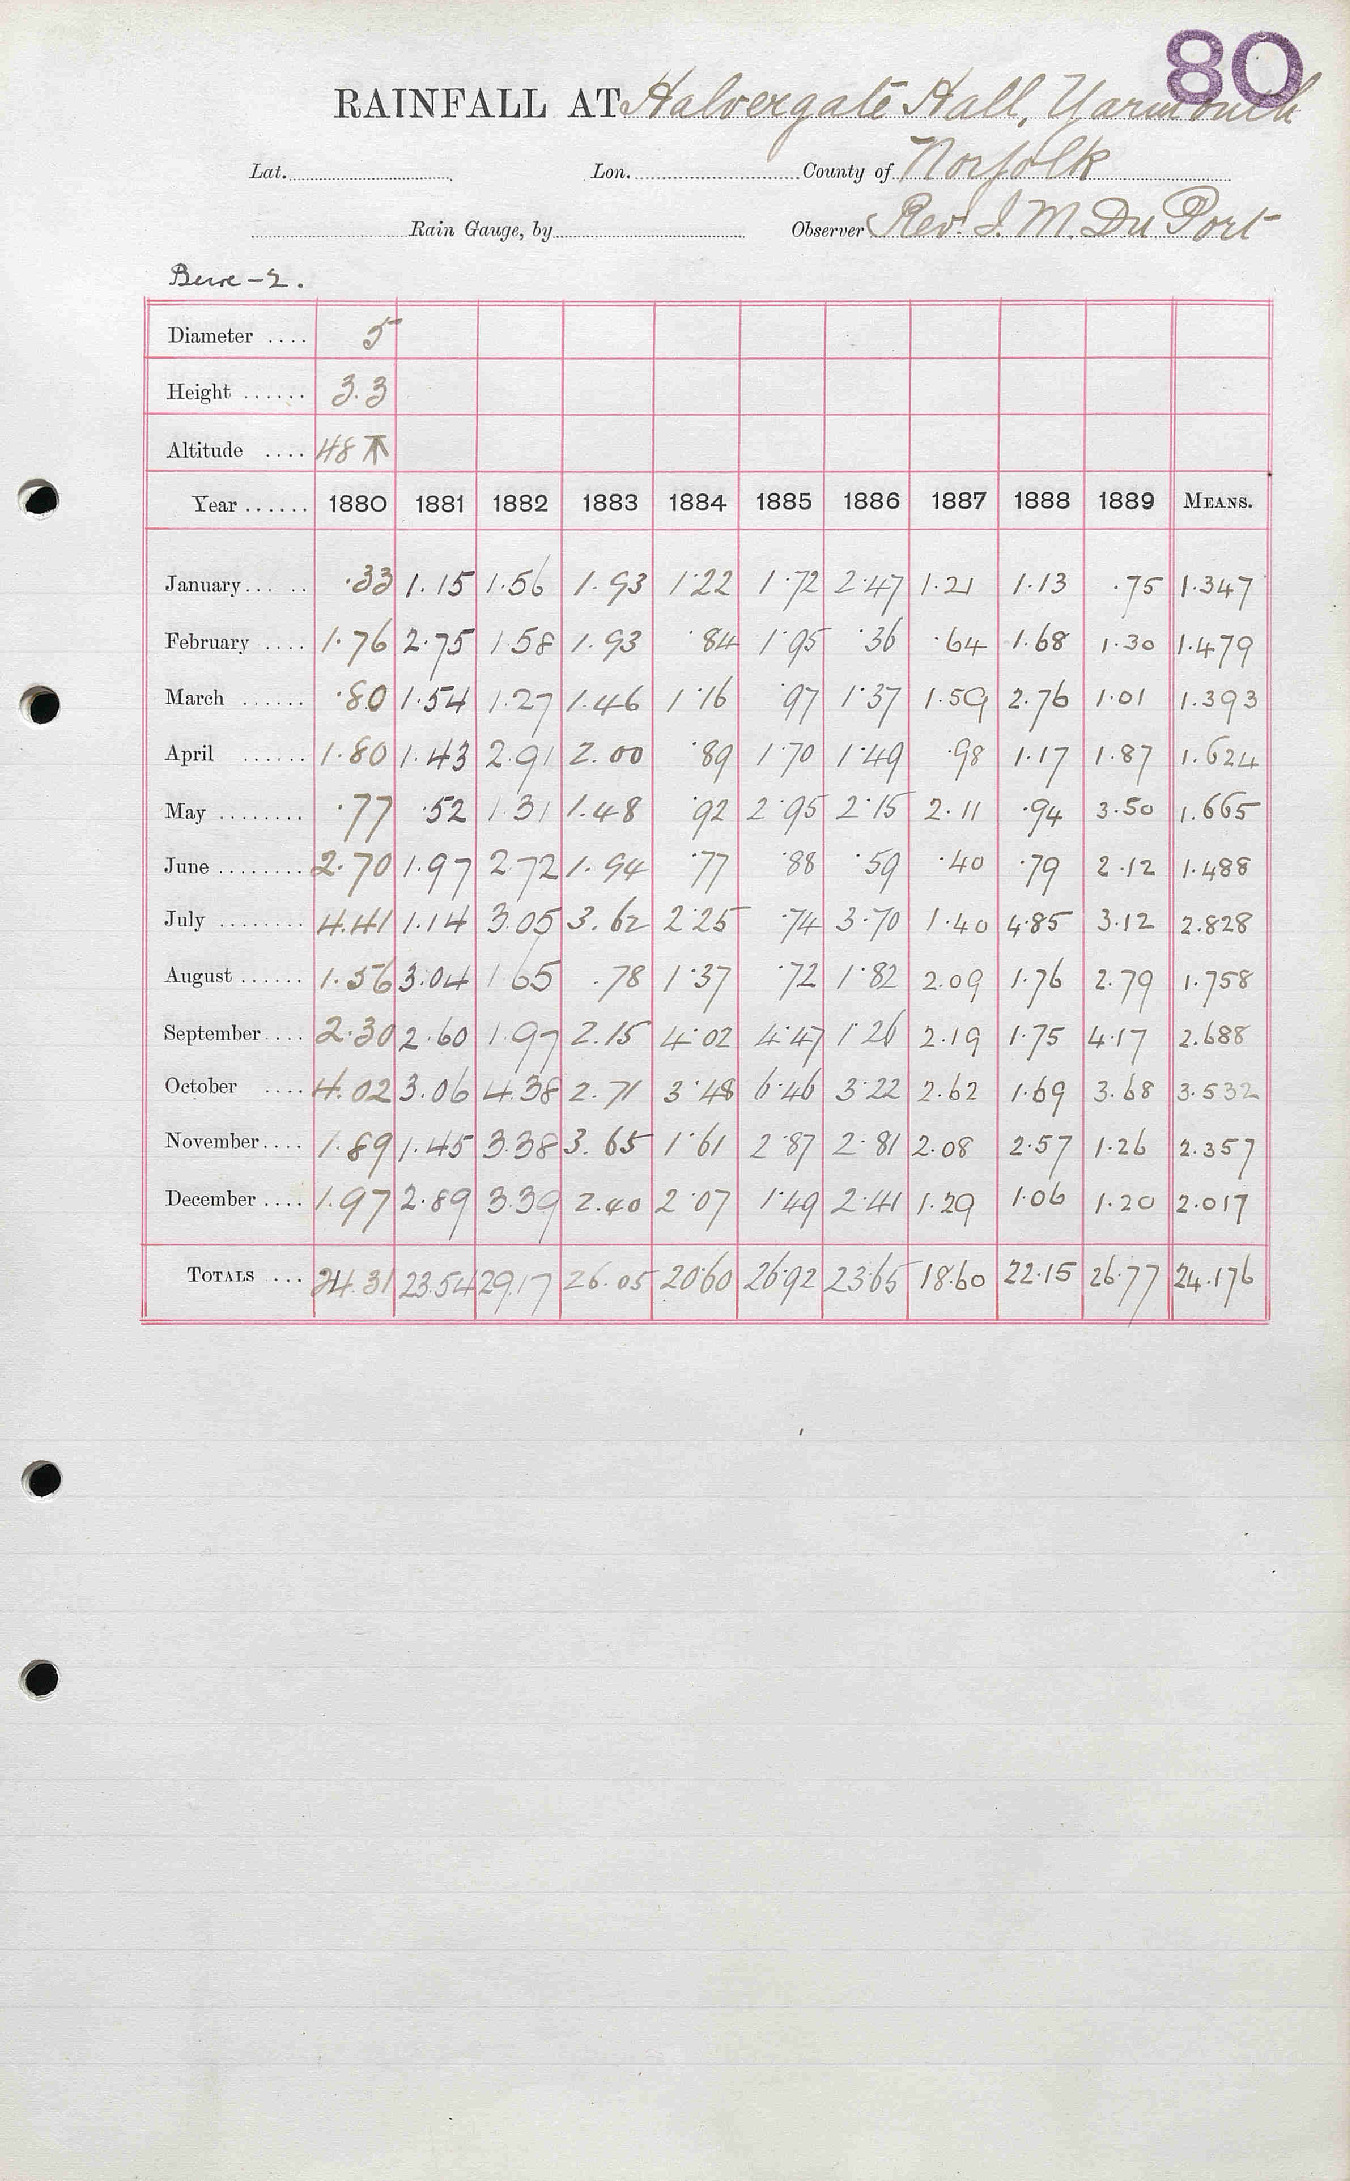 80
RAINFALL AT Halvergate Hall, Yarmouth
Lat. Lon. County of Norfolk
Rain Gauge, by Observer Rev. J. M. Du Port
Bure - 2.
Diameter .... 5
Height ...... 3.3
Altitude .... 48
Year ...... 1880 1881 1882 1883 1884 1885 1886 1887 1888 1889 MEANS.
January ... .. .33 1.15 1.56 1.93 1.22 1.72 2.47 1.21 1.13 .75 1.347
February .... 1.76 2.75 1.58 1.93 .84 1.95 .36 .64 1.68 1.30 1.479
March ...... .80 1.54 1.27 1.46 1.16 .97 1.37 1.59 2.76 1.01 1.393
April ...... 1.80 1.43 2.91 2.00 .89 1.70 1.49 .98 1.17 1.87 1.624
May ........ .77 .52 1.31 1.48 .92 2.95 2.15 2.11 .94 3.50 1.665
June ........ 2.70 1.97 2.72 1.94 .77 .88 .59 .40 .79 2.12 1.488
July ........ 4.41 1.14 3.05 3.62 2.25 .74 3.70 1.40 4.85 3.12 2.828
August ...... 1.56 3.04 1.65 .78 1.37 .72 1.82 2.09 1.76 2.79 1.758
September .... 2.30 2.60 1.97 2.15 4.02 4.47 1.26 2.19 1.75 4.17 2.688
October .... 4.02 3.06 4.38 2.71 3.48 6.46 3.22 2.62 1.69 3.68 3.532
November .... 1.89 1.45 3.38 3.65 1.61 2.87 2.81 2.08 2.57 1.26 2.357
December .... 1.97 2.89 3.39 2.40 2.07 1.49 2.41 1.29 1.06 1.20 2.017
TOTALS ... 24.31 23.54 29.17 26.05 20.60 26.92 23.65 18.60 22.15 26.77 24.176